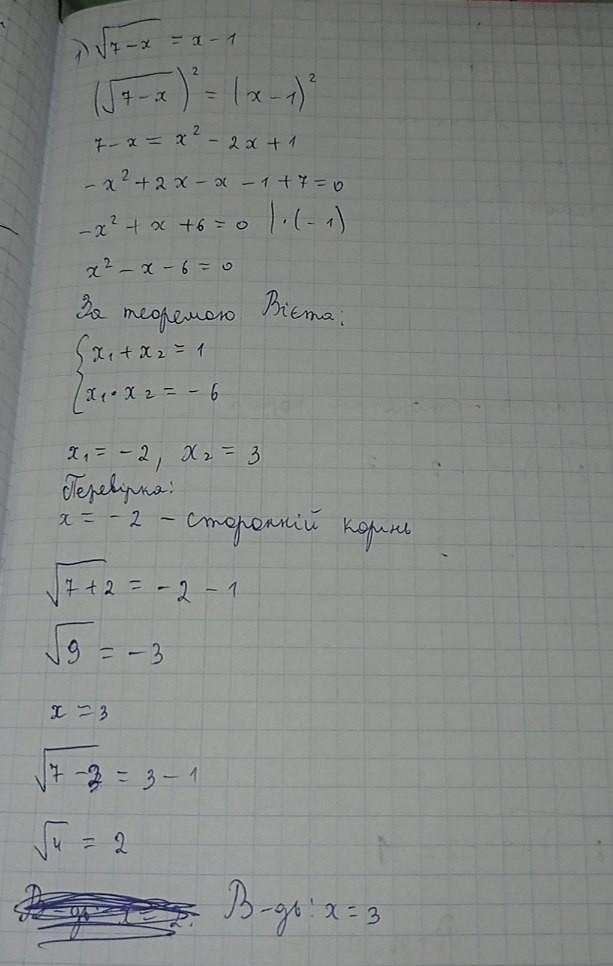 1) √7-x = x-1
(√7-x)² = (x-1)²
7-x = x² - 2x + 1
-x² + 2x - x - 1 + 7 = 0
-x² + x + 6 = 0 |·(-1)
x² - x - 6 = 0
За теоремою Вієта:
{x₁ + x₂ = 1
x₁ · x₂ = -6
x₁ = -2, x₂ = 3
Перевірка:
x = -2 - сторонній корінь
√7+2 = -2-1
√9 = -3
x = 3
√7-3 = 3-1
√4 = 2
В-дь: x = 3